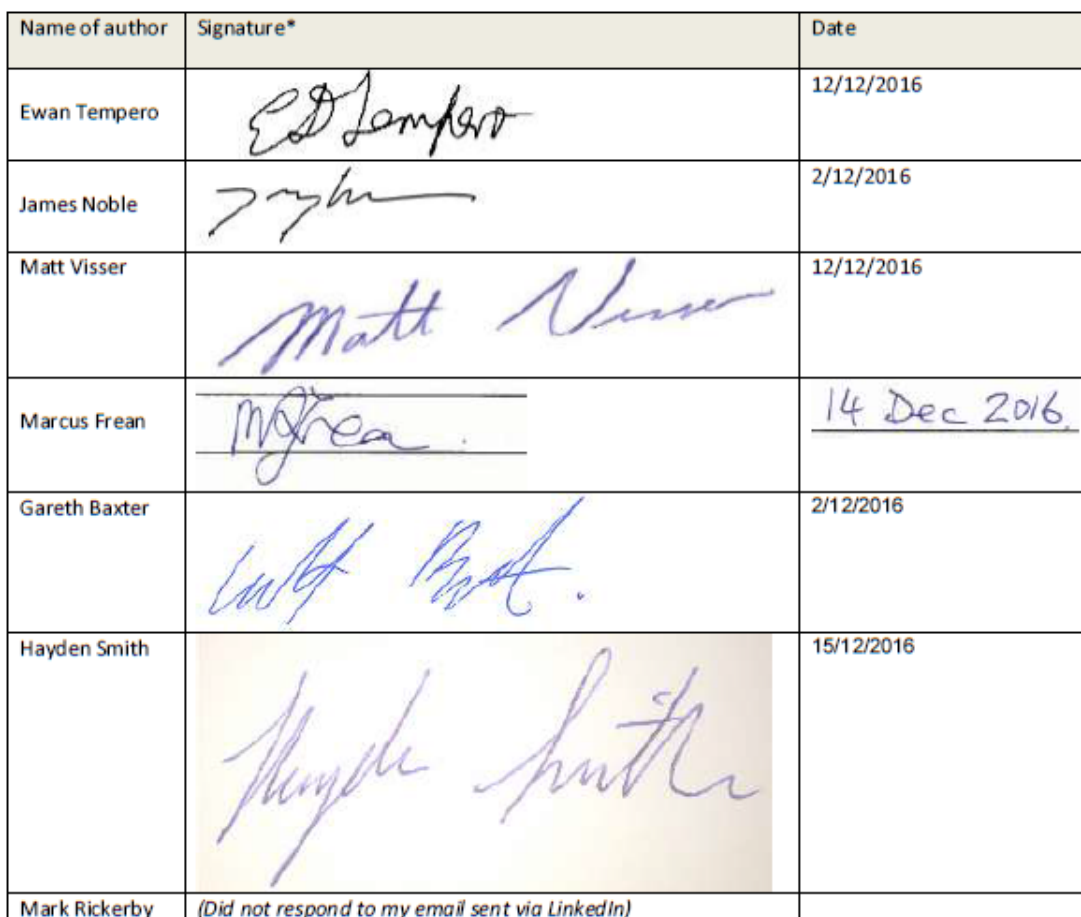 Name of author Signature* Date
Ewan Tempero ED Tempero 12/12/2016
James Noble 2/12/2016
Matt Visser Matt Visser 12/12/2016
Marcus Frean MFrean 14 Dec 2016.
Gareth Baxter 2/12/2016
Hayden Smith Hayden Smith 15/12/2016
Mark Rickerby (Did not respond to my email sent via LinkedIn)